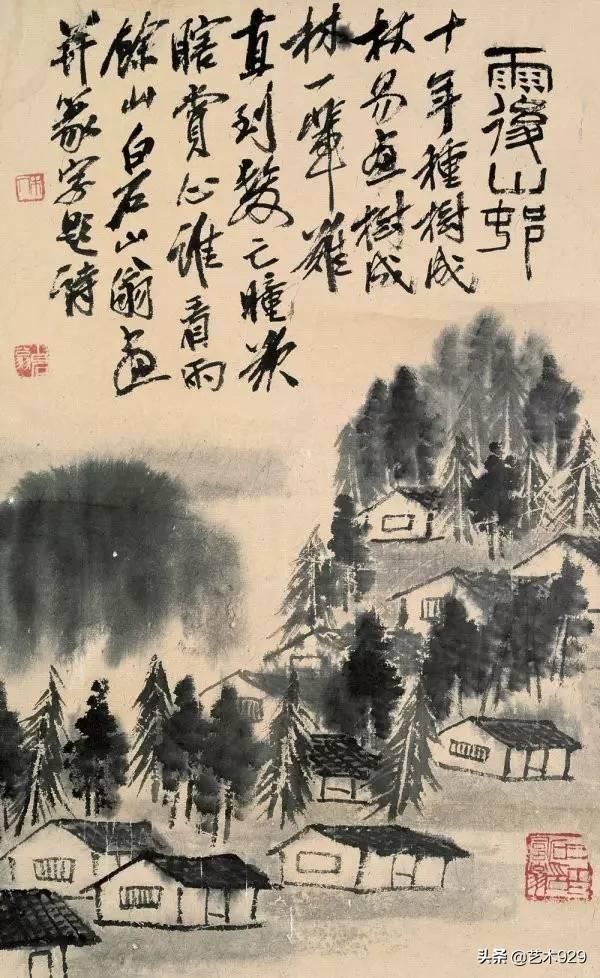 雨後山邨
十年種樹成
林易畫樹成
林一輩難
直到髮亡瞳欲
瞎賞心誰看雨
餘山白石山翁畫
并篆字題詩
头条 @艺术929